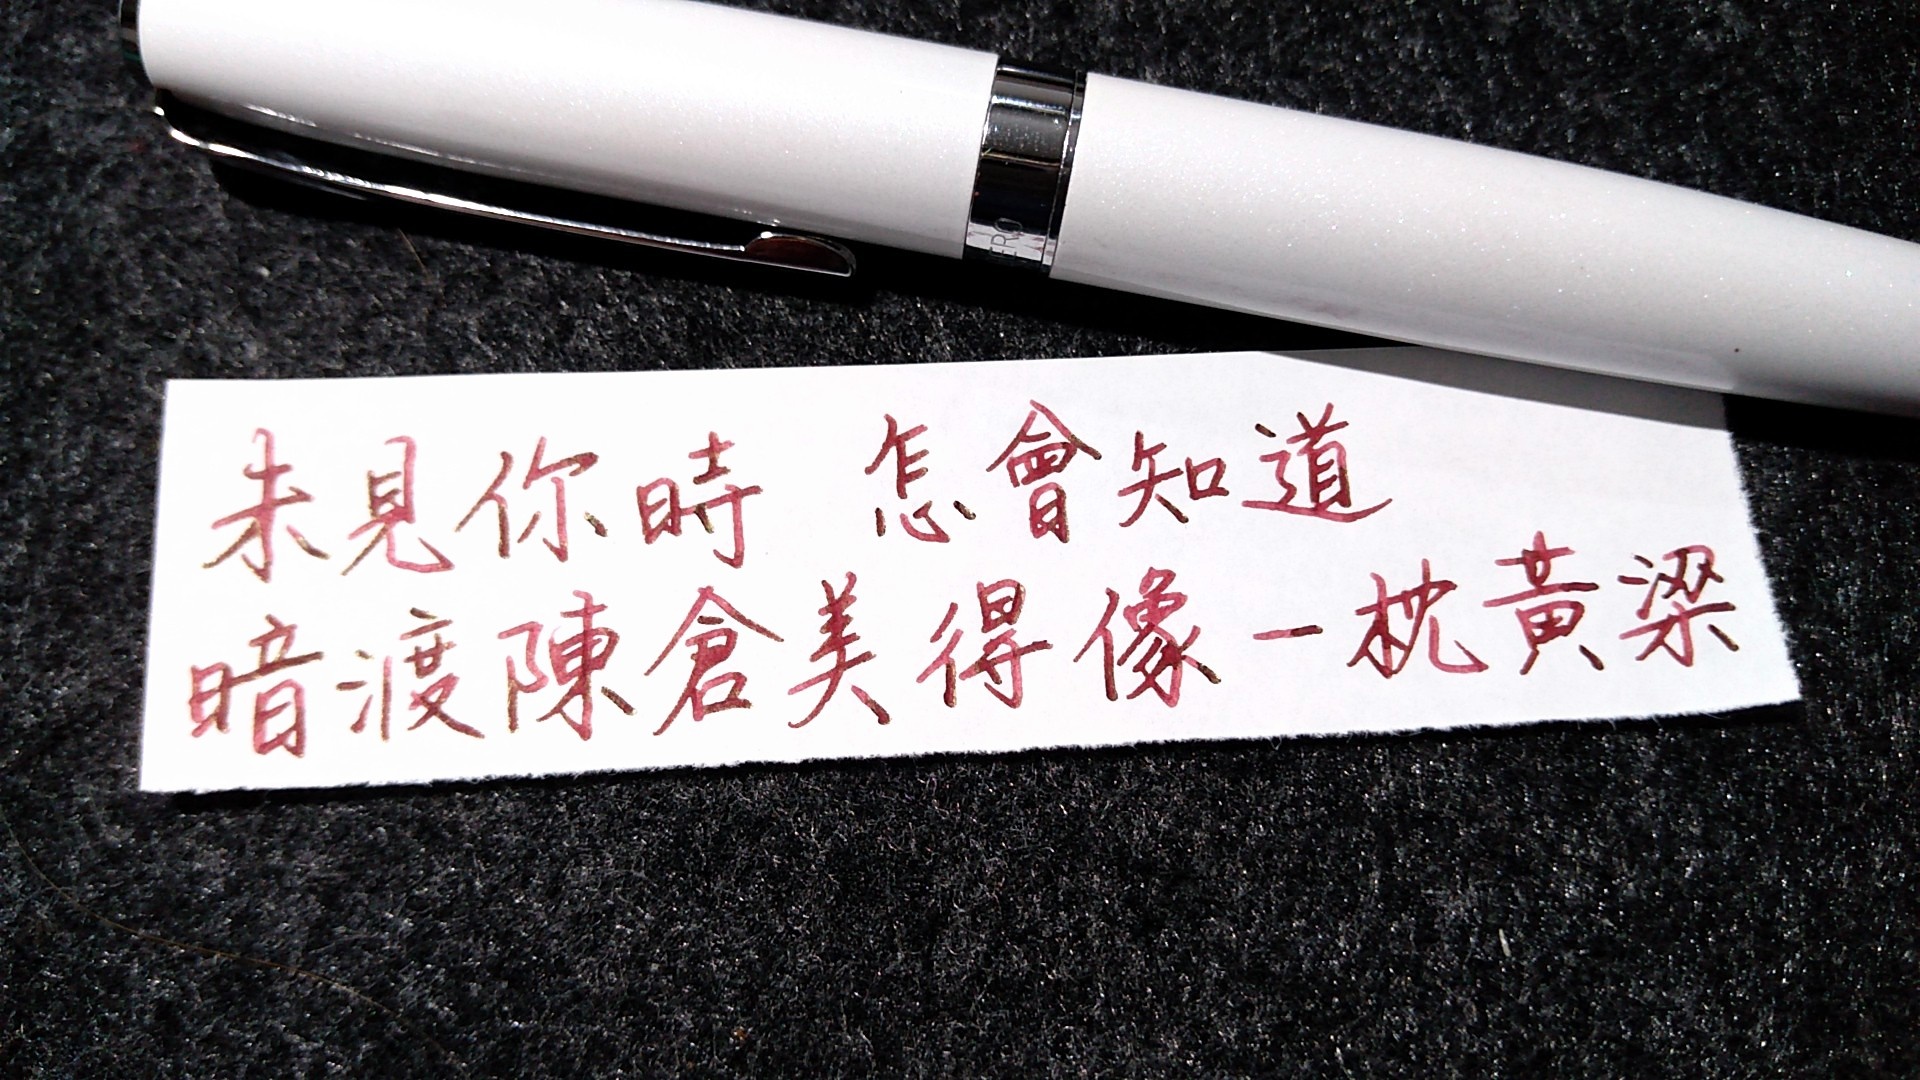 ERO
未見你時 怎會知道
暗渡陳倉美得像一枕黃梁